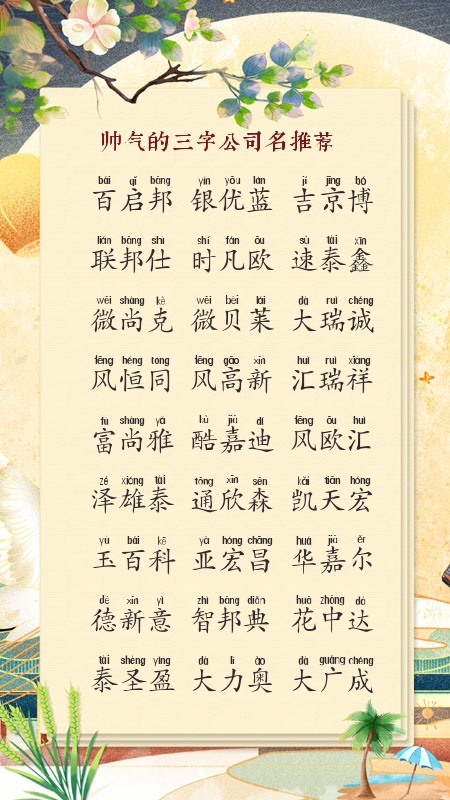 帅气的三字公司名推荐
bǎi qǐ bāng yín yōu lán jí jīng bó
百启邦 银优蓝 吉京博
lián bāng shì shí fán ōu sù tài xīn
联邦仕 时凡欧 速泰鑫
wēi shàng kè wēi bèi lái dà ruì chéng
微尚克 微贝莱 大瑞诚
fēng héng tóng fēng gāo xīn huì ruì xiáng
风恒同 风高新 汇瑞祥
fù shàng yǎ kù jiā dí fēng ōu huì
富尚雅 酷嘉迪 风欧汇
zé xióng tài tōng xīn sēn kǎi tiān hóng
泽雄泰 通欣森 凯天宏
yù bǎi kē yà hóng chāng huá jiā ěr
玉百科 亚宏昌 华嘉尔
dé xīn yì zhì bāng diǎn huā zhōng dá
德新意 智邦典 花中达
tài shèng yíng dà lì ào dà guǎng chéng
泰圣盈 大力奥 大广成